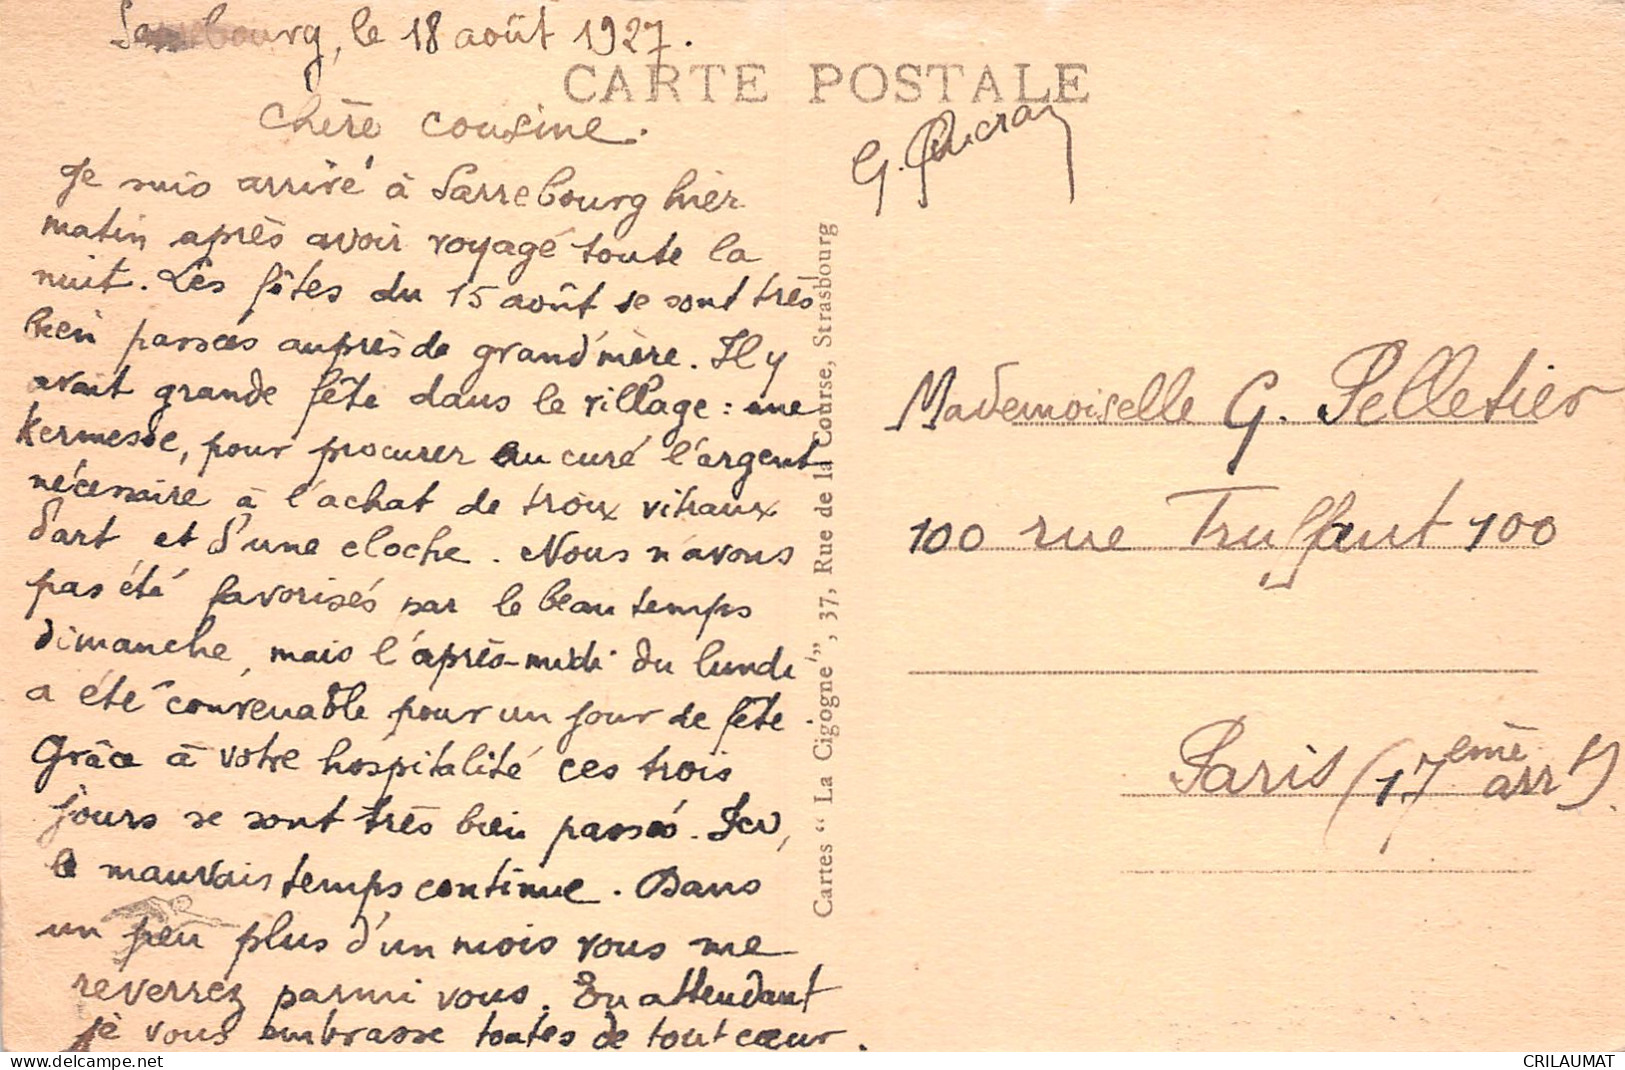 Sarrebourg, le 18 août 1927.
CARTE POSTALE
Chère cousine.
Je suis arrivé à Sarrebourg hier
matin après avoir voyagé toute la
nuit. Les fêtes du 15 août se sont très
bien passées auprès de grand'mère. Il y
avait grande fête dans le village : une
kermesse, pour procurer au curé l'argent
nécessaire à l'achat de trois vitraux
d'art et d'une cloche. Nous n'avons
pas été favorisés par le beau temps
dimanche, mais l'après-midi du lundi
a été convenable pour un jour de fête.
Grâce à votre hospitalité ces trois
jours se sont très bien passés. Ici,
le mauvais temps continue. Dans
un peu plus d'un mois vous me
reverrez parmi vous. En attendant
je vous embrasse toutes de tout cœur.
G.
Cartes "La Cigogne", 37, Rue de la Course, Strasbourg
Mademoiselle G. Pelletier
100 rue Truffaut 100
Paris (17ème arrt).
delcampe.net
CRILAUMAT